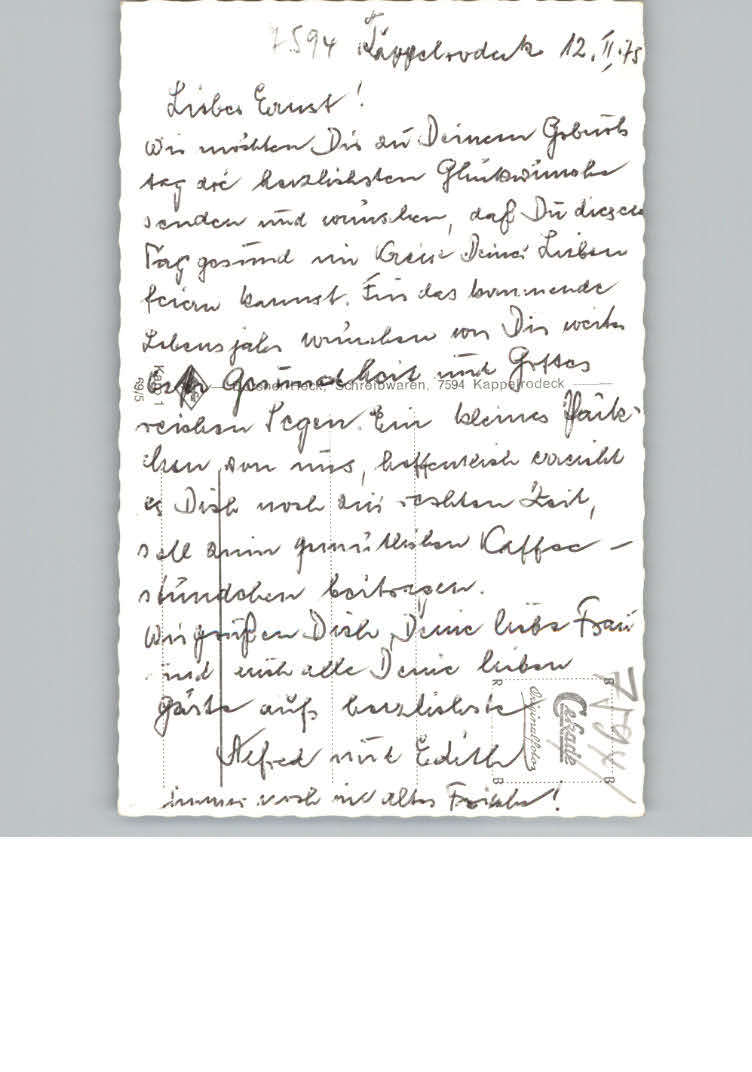 7594 Kappelrodeck 12.II.75
Lieber Ernst!
Wir möchten Dir zu Deinem Geburts
tag die herzlichsten Glückwünsche
senden und wünschen, daß Du diesen
Tag gesund im Kreise Deiner Lieben
feiern kannst. Für das kommende
Lebensjahr wünschen wir Dir weiter
Gesundheit und Gottes
Schreibwaren, 7594 Kappelrodeck
Kapp 1
69/5
reichen Segen. Ein kleines Päck-
chen von uns, hoffentlich erreicht
es Dich noch zur rechten Zeit,
soll zum gemütlichen Kaffee-
stündchen beitragen.
Wir grüßen Dich, Deine liebe Frau
und auch alle Deine lieben
Gäste aufs herzlichste
Alfred und Edith
immer noch in alter Frische!
Cekade
Originalfoto
R
B
B
B
7594